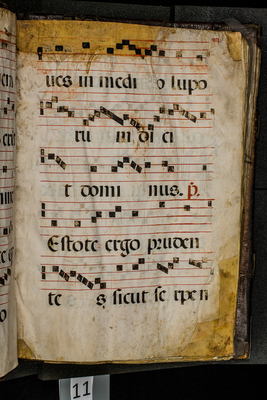 ues in medi o lupo
ru m di ci
t domi nus. p̃.
Estote ergo pruden
te s sicut se rpen
11